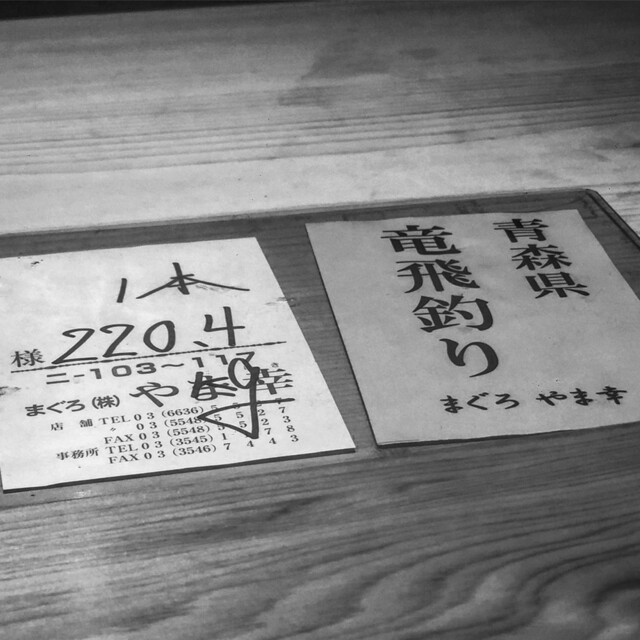 1本
様 220.4
kg
ニ-103〜117
まぐろ (株) やま幸
店舗 TEL 03 (6636)
03 (5548)
FAX 03 (5548)
事務所 TEL 03 (3545)
FAX 03 (3546)
青森県
竜飛釣り
まぐろ やま幸